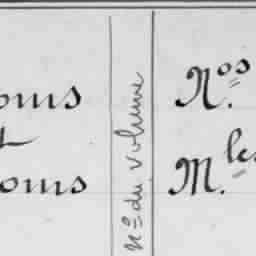 oms
oms
No du volume
Nos.
M.les